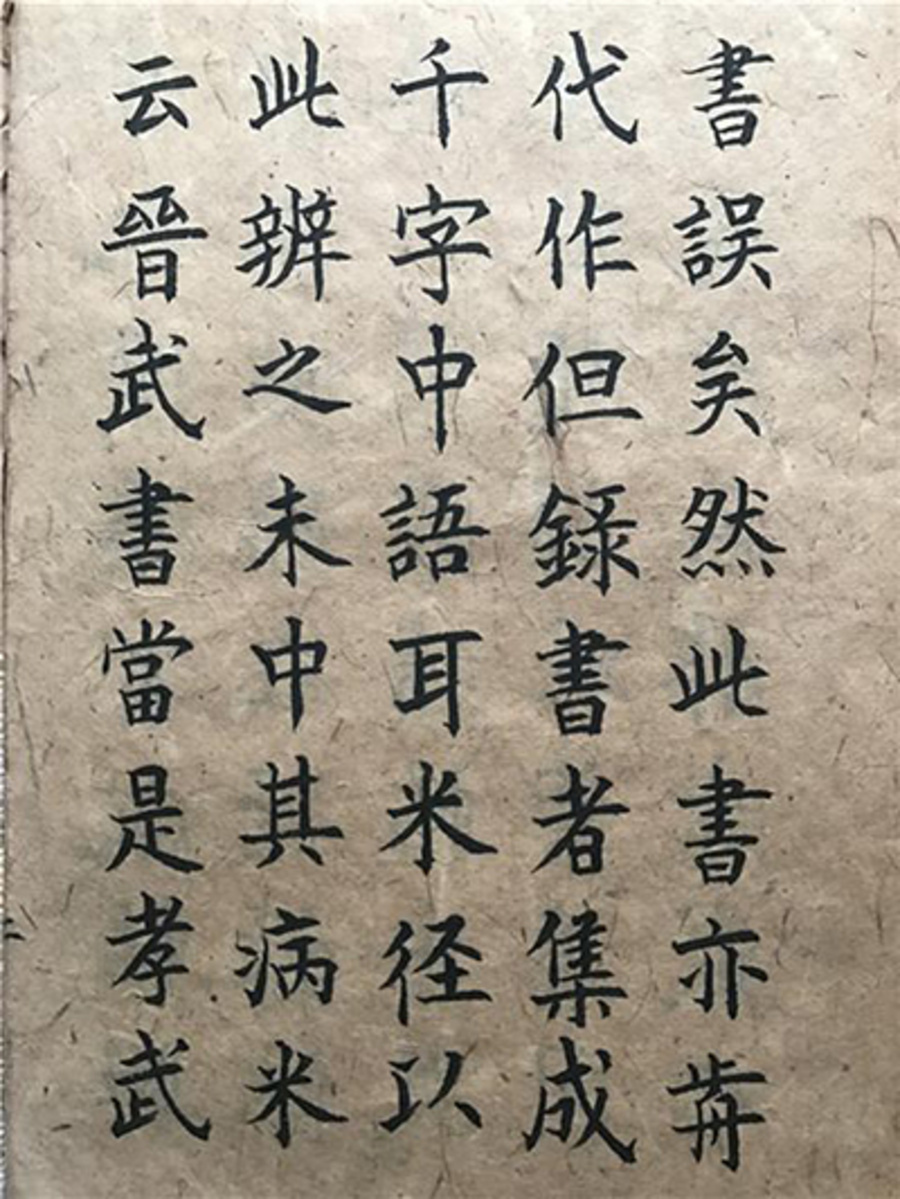 書誤矣然此書亦歬
代作但錄書者集成
千字中語耳米径以
此辨之未中其病米
云晉武書當是孝武